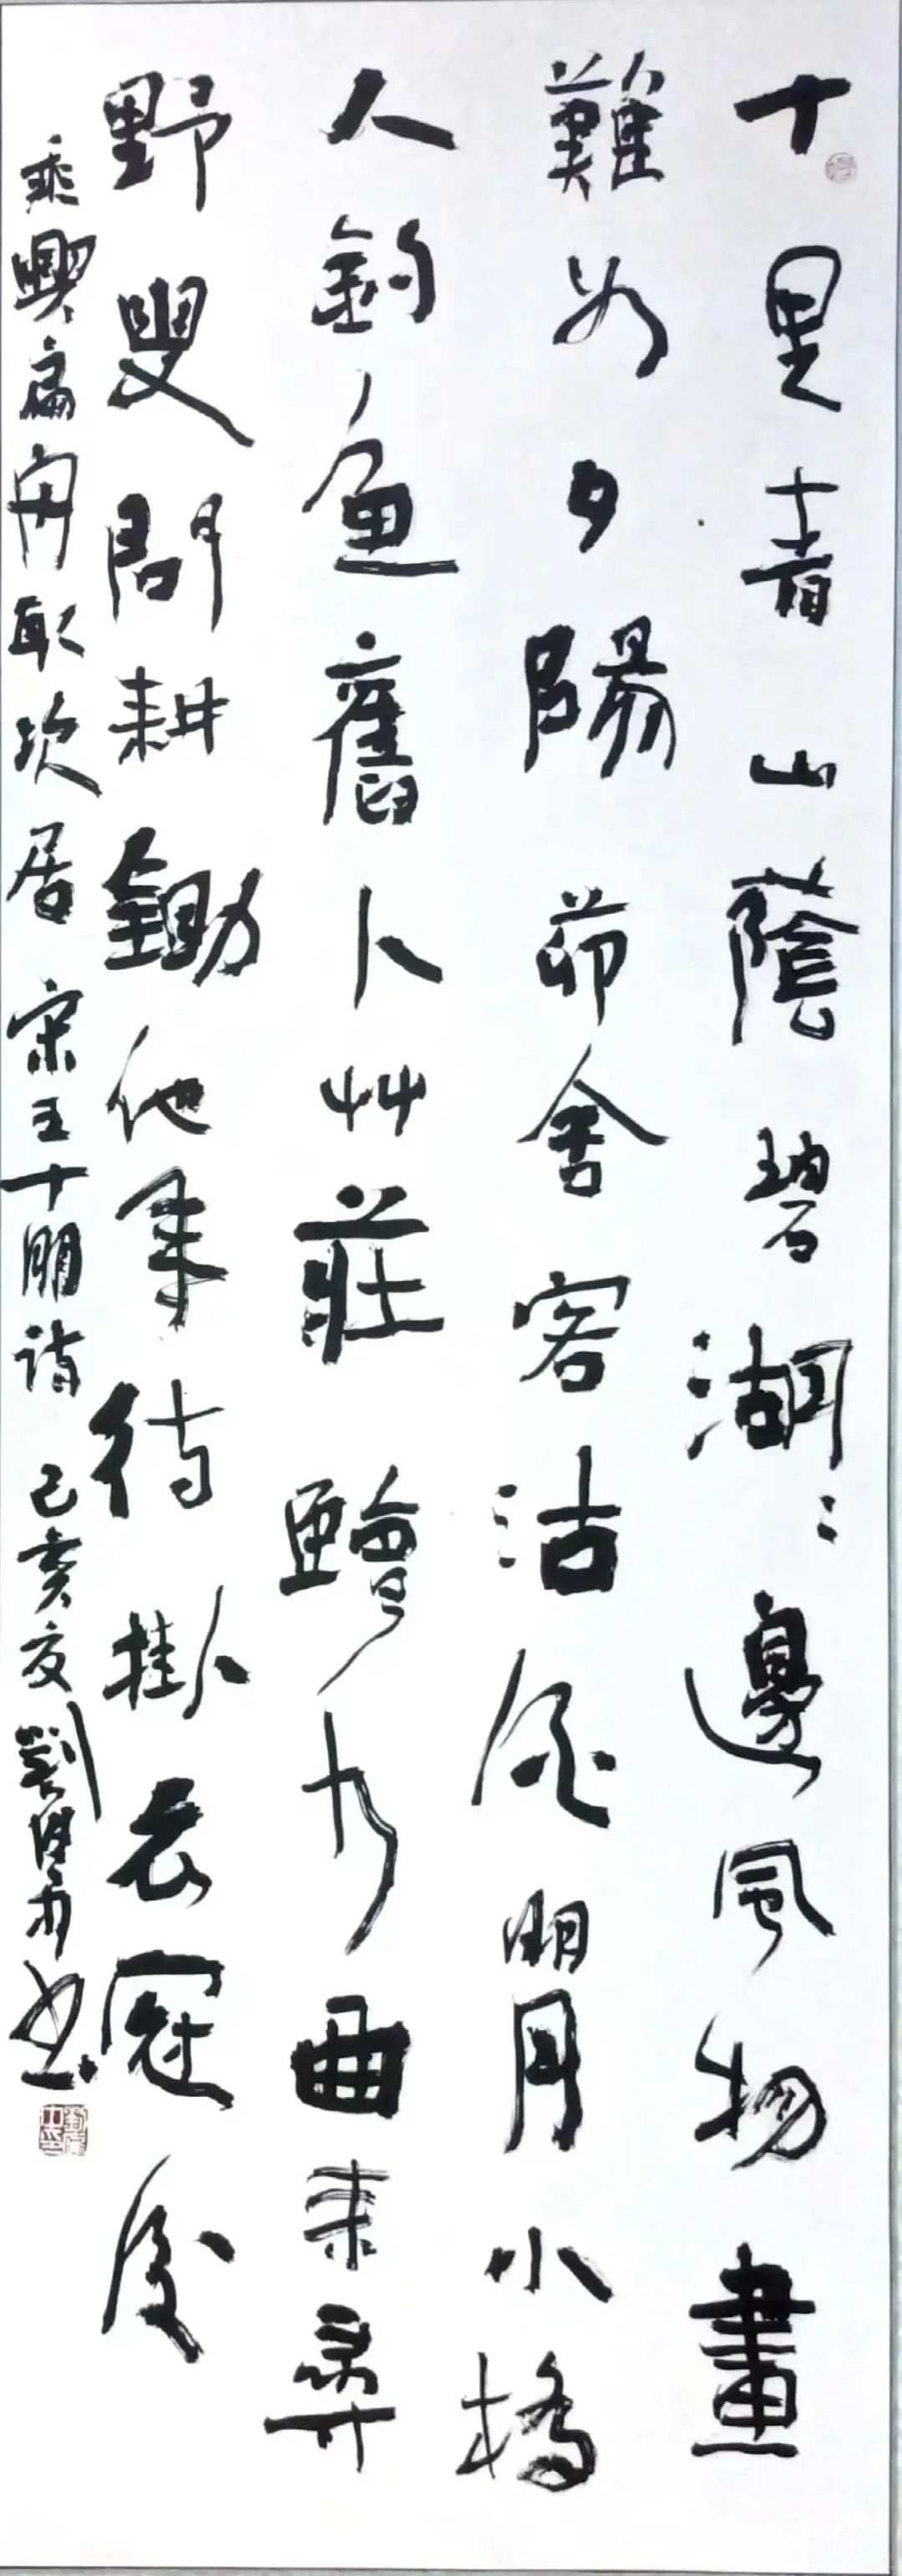 十里青山蔭碧湖〻邊風物畫
難如夕陽茆舍客沽酒明月小橋
人釣魚舊卜艸莊曲来尋
野叟問耕鋤他年待掛衣冠後
乘興扁舟取次居 宋王十朋詩 己亥夏 劉書